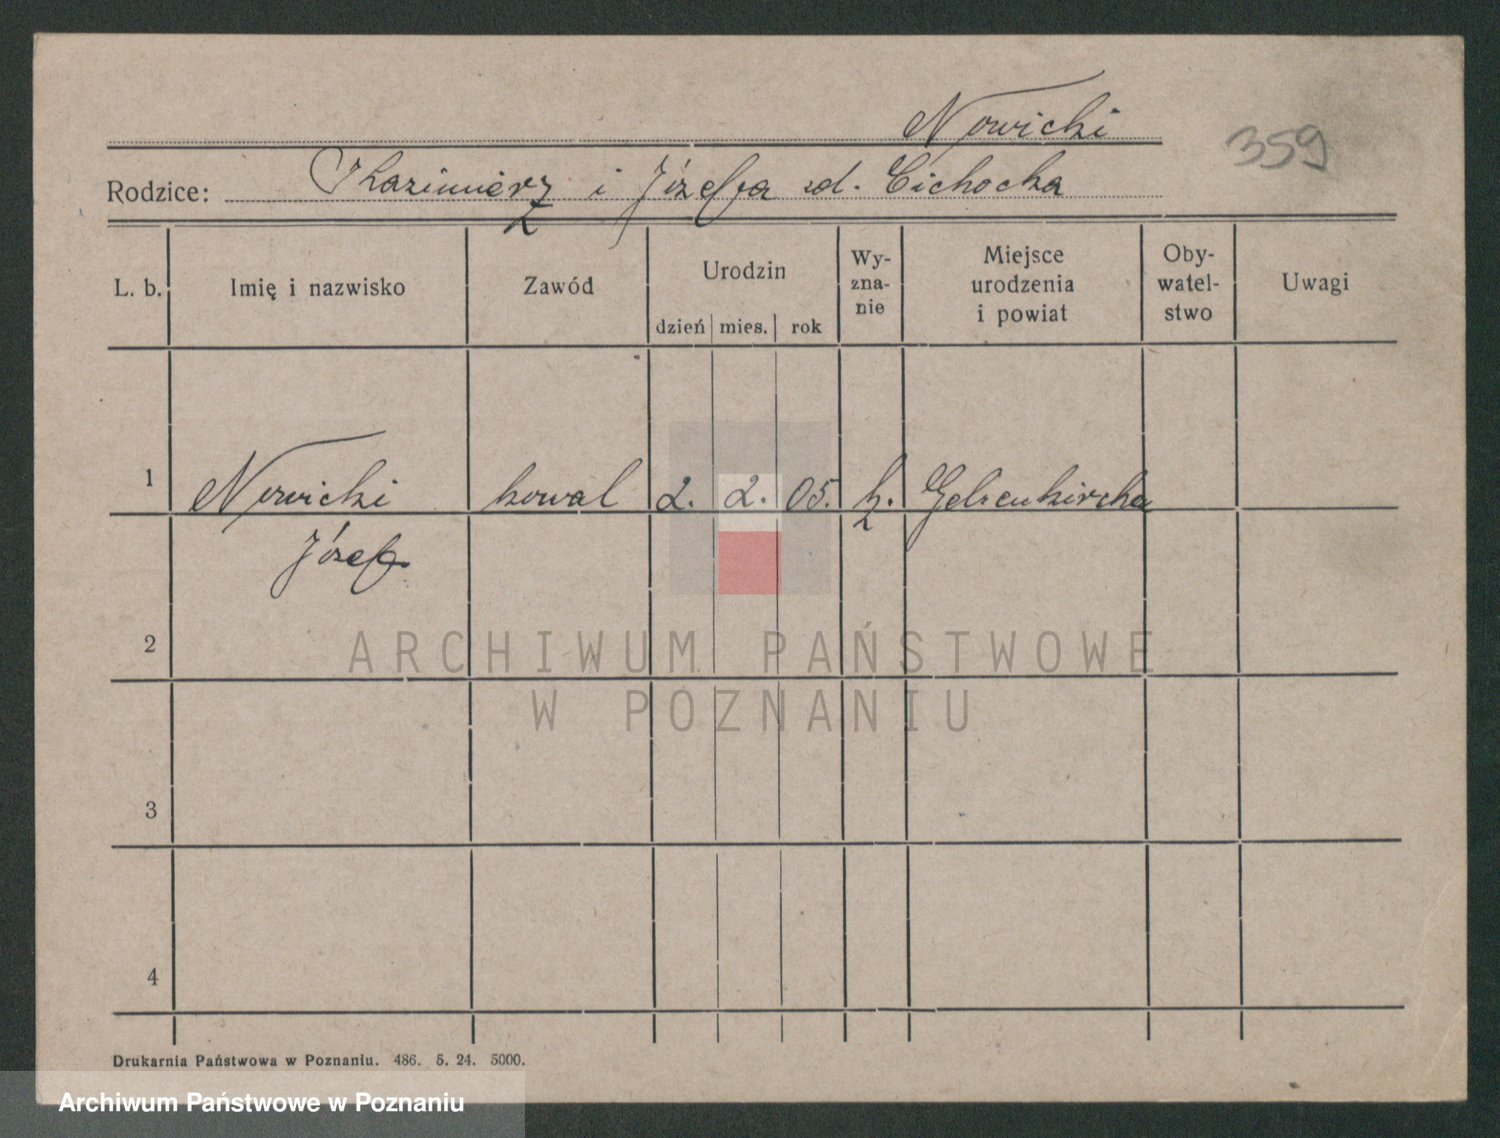 Nowicki
359
Rodzice: Kazimierz i Józefa zd. Cichocka
L. b. Imię i nazwisko Zawód Urodzin dzień mies. rok Wy-zna-nie Miejsce urodzenia i powiat Oby-watel-stwo Uwagi
1 Nowicki kowal 2. 2. 05. k. Gelsenkirchen
Józef
2
3
4
ARCHIWUM PAŃSTWOWE
W POZNANIU
Drukarnia Państwowa w Poznaniu. 486. 5. 24. 5000.
Archiwum Państwowe w Poznaniu